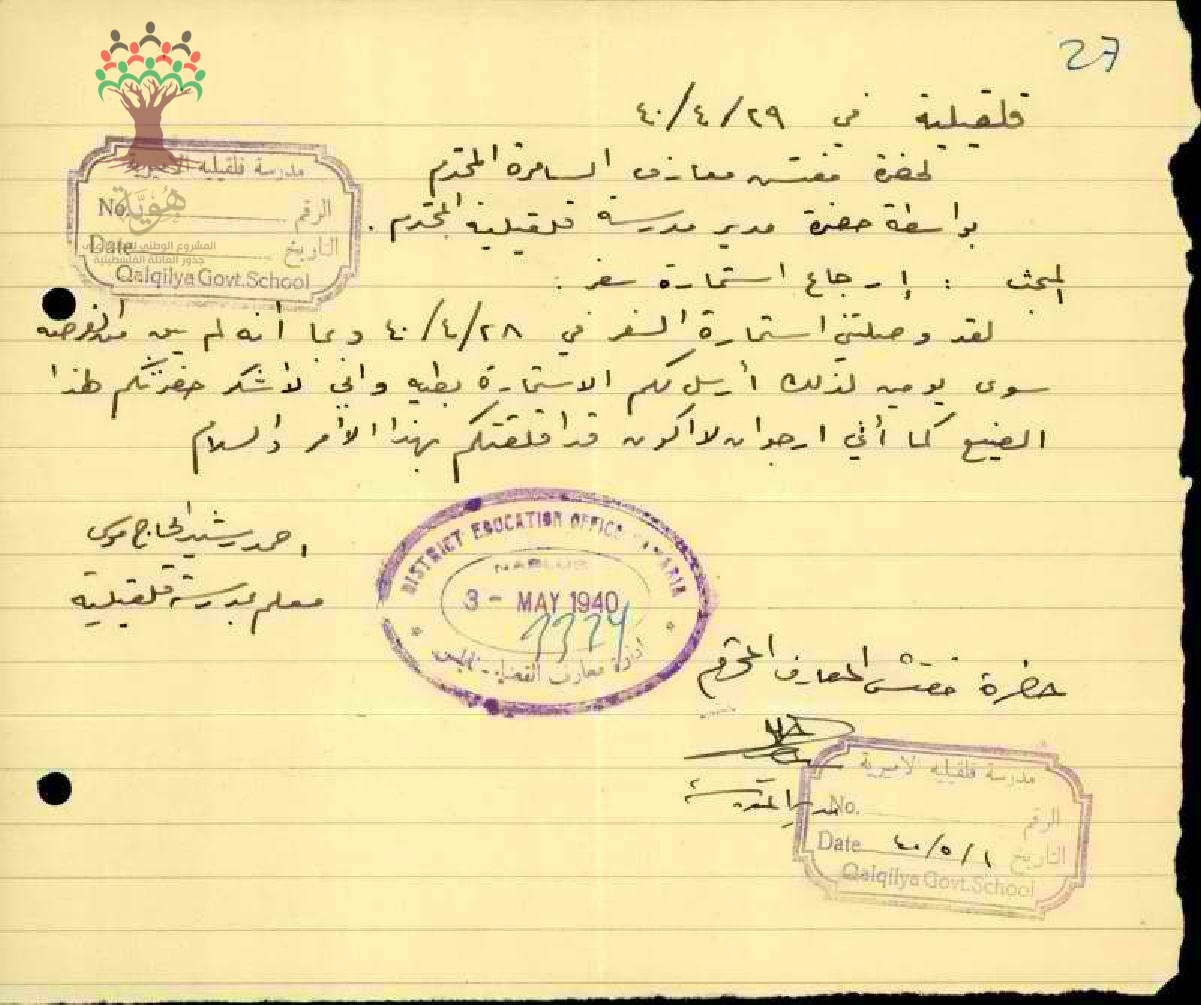 27
قلقيلية في ٢٩/٤/٤٠
لحضرة مفتش معارف السامرة المحترم
بواسطة حضرة مدير مدرسة قلقيلية المحترم .
المبحث : إرجاع استمارة سفر :
لقد وصلتني استمارة السفر في ٢٨/٤/٤٠ وبما أنه لم يبق من الفرصه
سوى يومين لذلك أرسل لكم الاستمارة بطيه واني لأشكر حضرتكم هذا
الصنيع كما أني ارجو ان لا اكون قد اقلقتكم بهذا الأمر والسلام
احمد رشيد الحاج موسى
معلم بمدرسة قلقيلية
مدرسة قلقيليه الاميرية
No. الرقم
Date التاريخ
Qalqilya Govt. School
هُوِيَّة
المشروع الوطني
جذور العائلة الفلسطينية
DISTRICT EDUCATION OFFICE SAMARIA
NABLUS
3 - MAY 1940
ادارة معارف القضاء - نابلس
حضرة مفتش المعارف المحترم
مدير المدرسة
مدرسة قلقيليه الاميرية
No. الرقم
Date ١/٥/٤٠ التاريخ
Qalqilya Govt. School